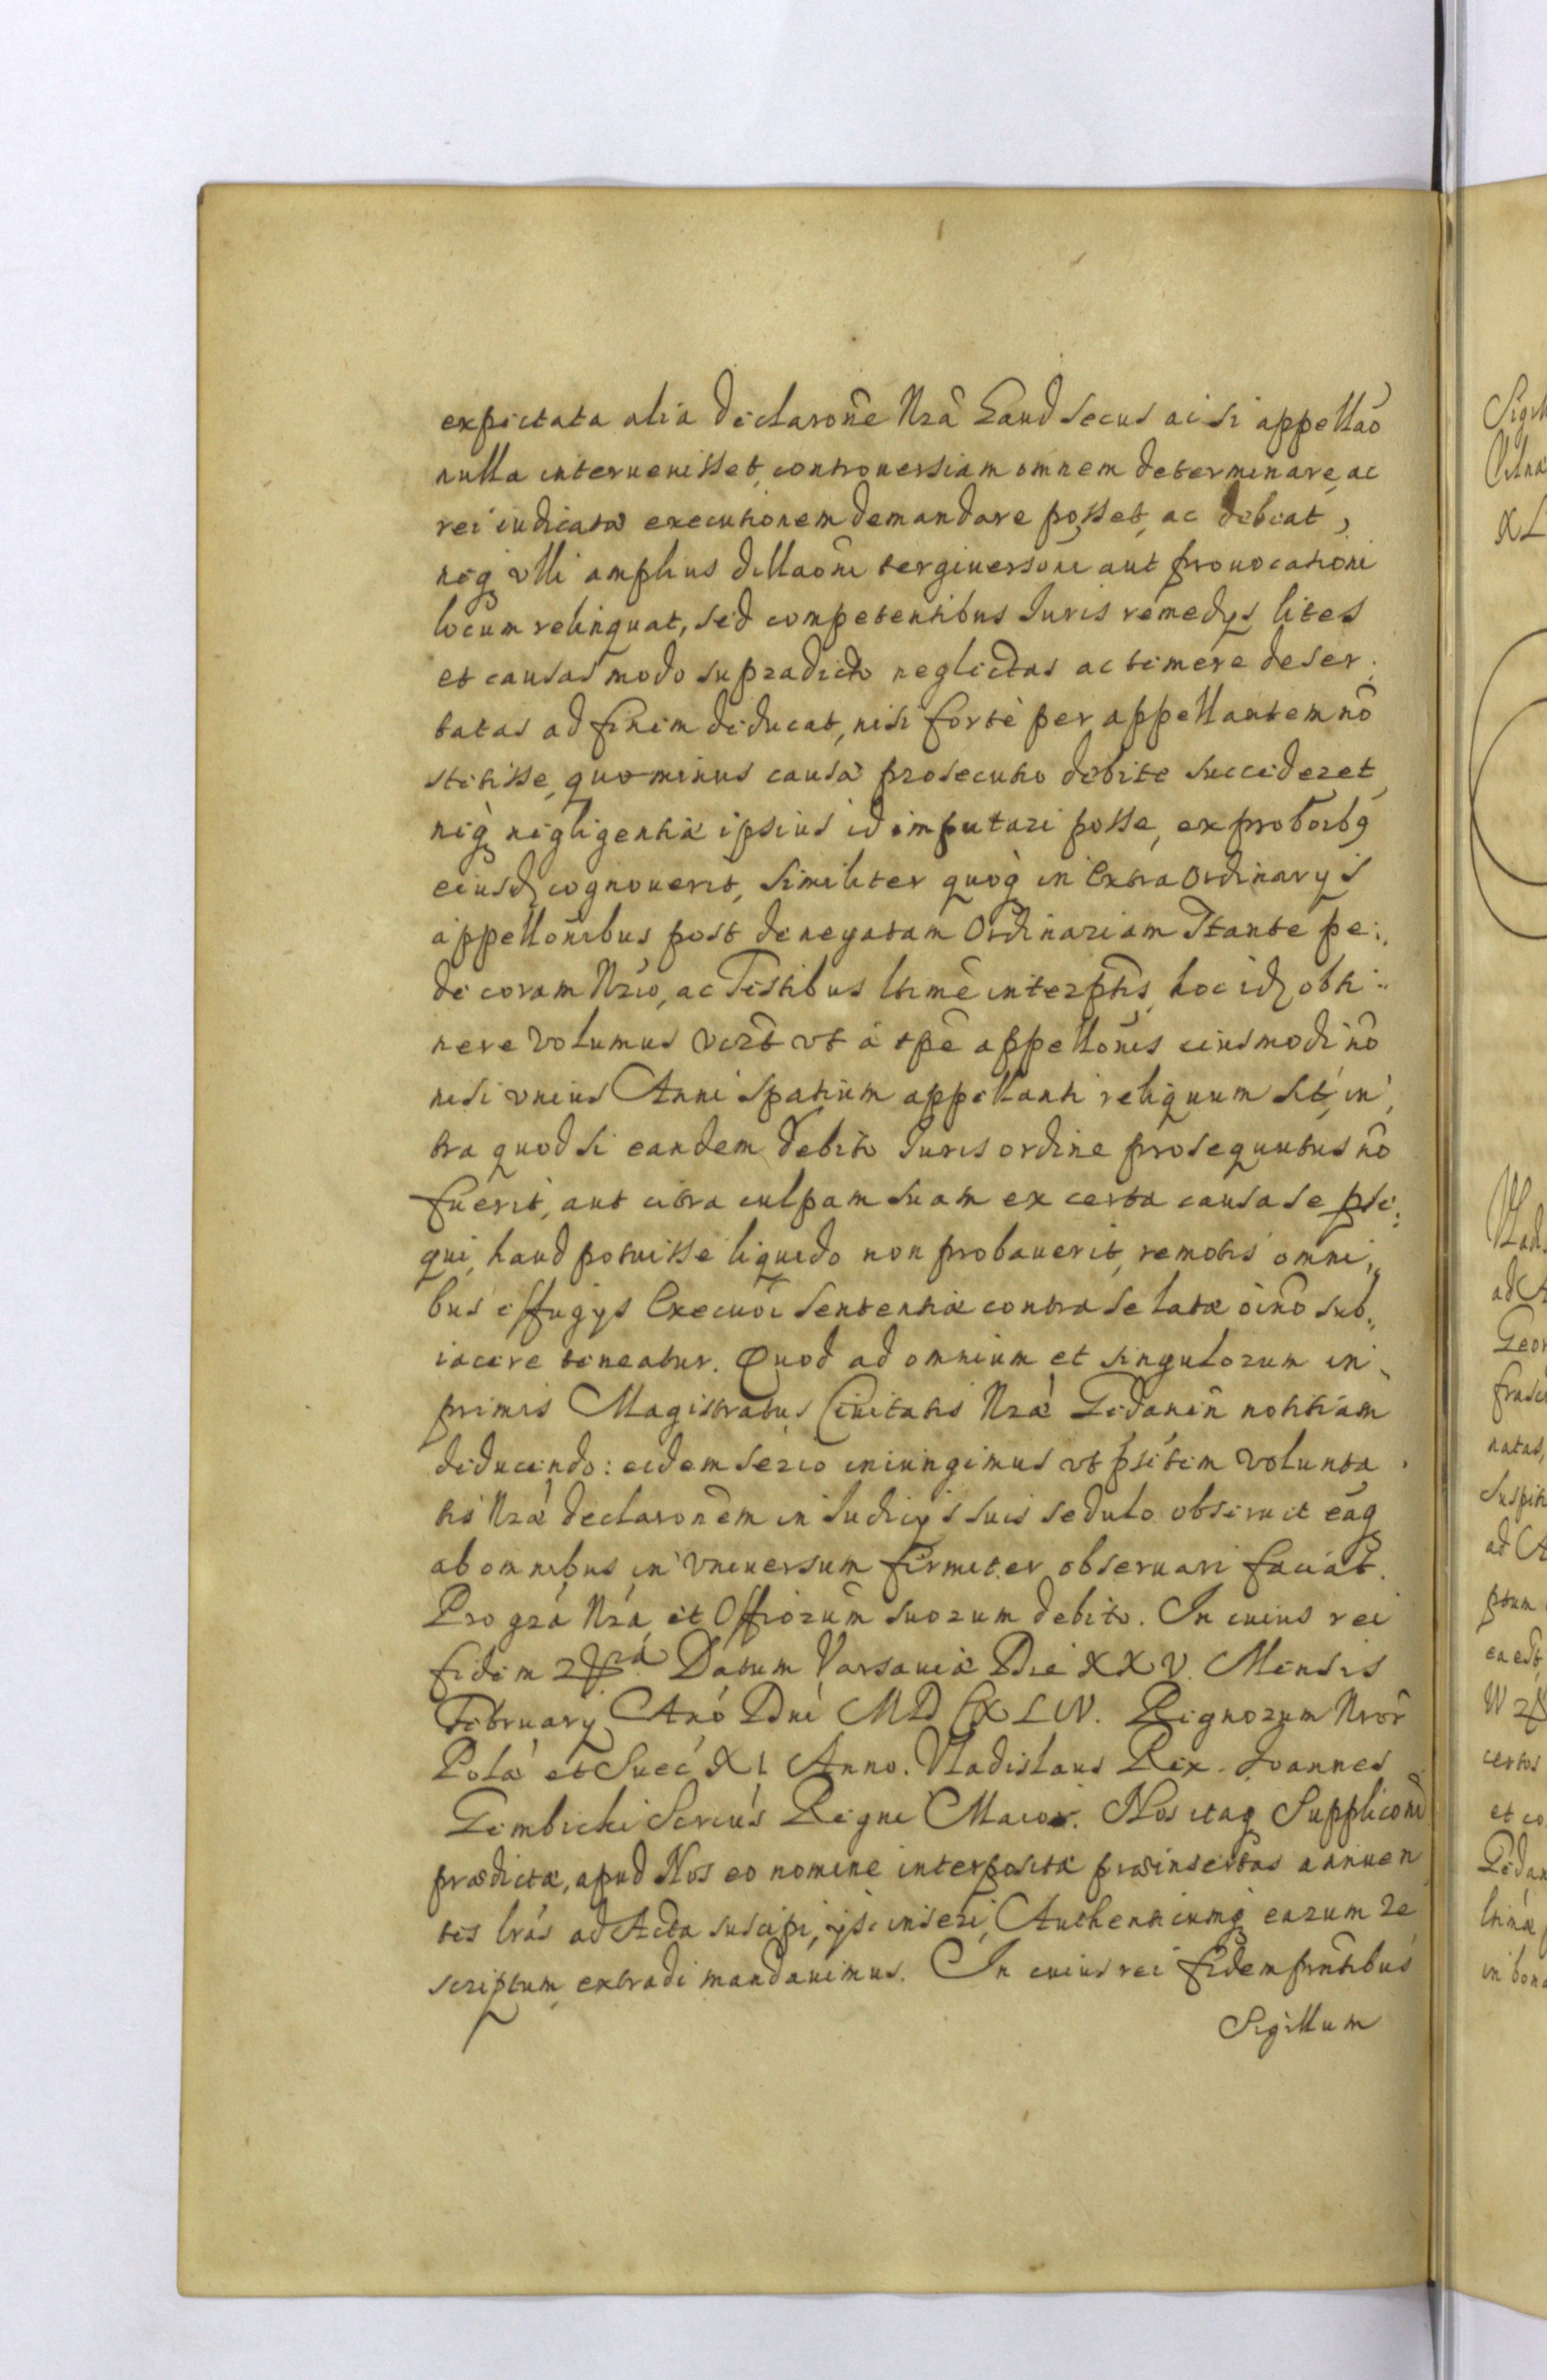 expectata alia declaronẽ Nrâ haud secus ac si appellaõ
nulla interuenisset, controuersiam omnem determinare, ac
rei iudicatæ executionem demandare posset, ac debeat,
neq̢ vlli amplius dillaõni tergiuersõni aut prouocationi
locum relinquat, sed competentibus Iuris remedys lites
et causas modo supradicto neglectas ac temere deser:
tatas ad finem deducat, nisi fortè per appellantem nõ
stetisse, quo minus causæ prosecutio debite succederet,
neq̢ negligentiæ ipsius id imputari posse, ex probõib9
eiusd cognouerit, similiter quoq̀ in Extra Ordinarys
appellõnibus post denegatam Ordinariam Stante pe:
de coram Nrio, ac Testibus ltimẽ interptis, hoc id obti:
nere Volumus Vizt vt à tpẽ appellõnis eiusmodi nõ
nisi vnius Anni spatium appellanti reliquum sit, in:
tra quod si eandem debito Iuris ordine prosequutus nõ
fuerit, aut citra culpam suam ex certa causa se pse:
qui, haud potuisse liquido non probauerit, remotis omni:
bus effugys Execuõi Sententiæ contra se latæ oĩno sub:
iacere teneatur. Quod ad omnium et singulorum in
primis Magistratus Ciuitatis Nræ Gedanẽn notitiam
deducendo: eidem serio iniungimus vt psẽtem volunta
tis Nræ declaronẽm in Iudicys suis sedulo obseruet eãq̢
ab omnibus in vniuersum firmiter obseruari faciat.
Pro grâ Nrâ, et Officiorum suorum debito. In cuius rei
fidem Datum Varsauiæ Die XXV. Mensis
February Anõ Dni MDCXLIV. Regnorum Nror̃
Polæ et Sueć XI Anno. Vladislaus Rex. Ioannes
Gembicki Secrius Regni Maior. Nos itaq̢ Suppliconi
prædictæ, apud Nos eo nomine interpositæ præinsertas annuen
tes lrãs ad Acta suscipi, ijsq̢ inseri, Authenticumq̢ earum Re
scriptum extradi mandauimus. In cuius rei fidem prñtibus
Sigillum